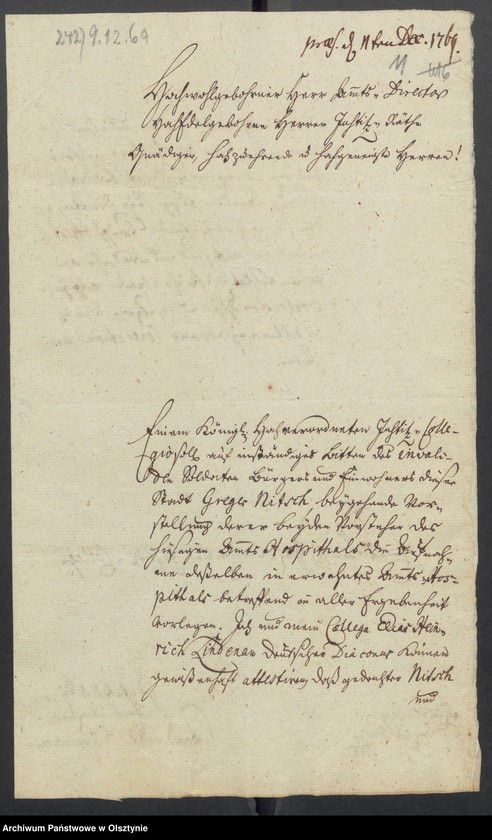 242) 9.12.69
præs. d. 11ten Dec. 1769.
11
Hochwohlgebohrner Herr Ammts-Director
Hochedelgebohrne Herren Justitz-Räthe
Gnädiger, hochzuehrende u hochgeneigte Herren!
Einem Königl: Hochverordneten Justitz-Colle-
gio soll auf inständiges Bitten des Invali-
den Soldaten Bürgers und Einwohners dieser
Stadt Greger Nitsch, beygehende Vor-
stellung derer beyden Vorsteher des
hiesigen Ammts Hospithals die Aufnah-
me deßelben in erwehntes Ammts-Hos-
pithals betreffend in aller Ergebenheit
vorlegen. Ich und mein College Elias Hein-
rich Lindenau deutscher Diaconus können
gewißenhaft attestiren, daß gedachter Nitsch
und
Archiwum Państwowe w Olsztynie